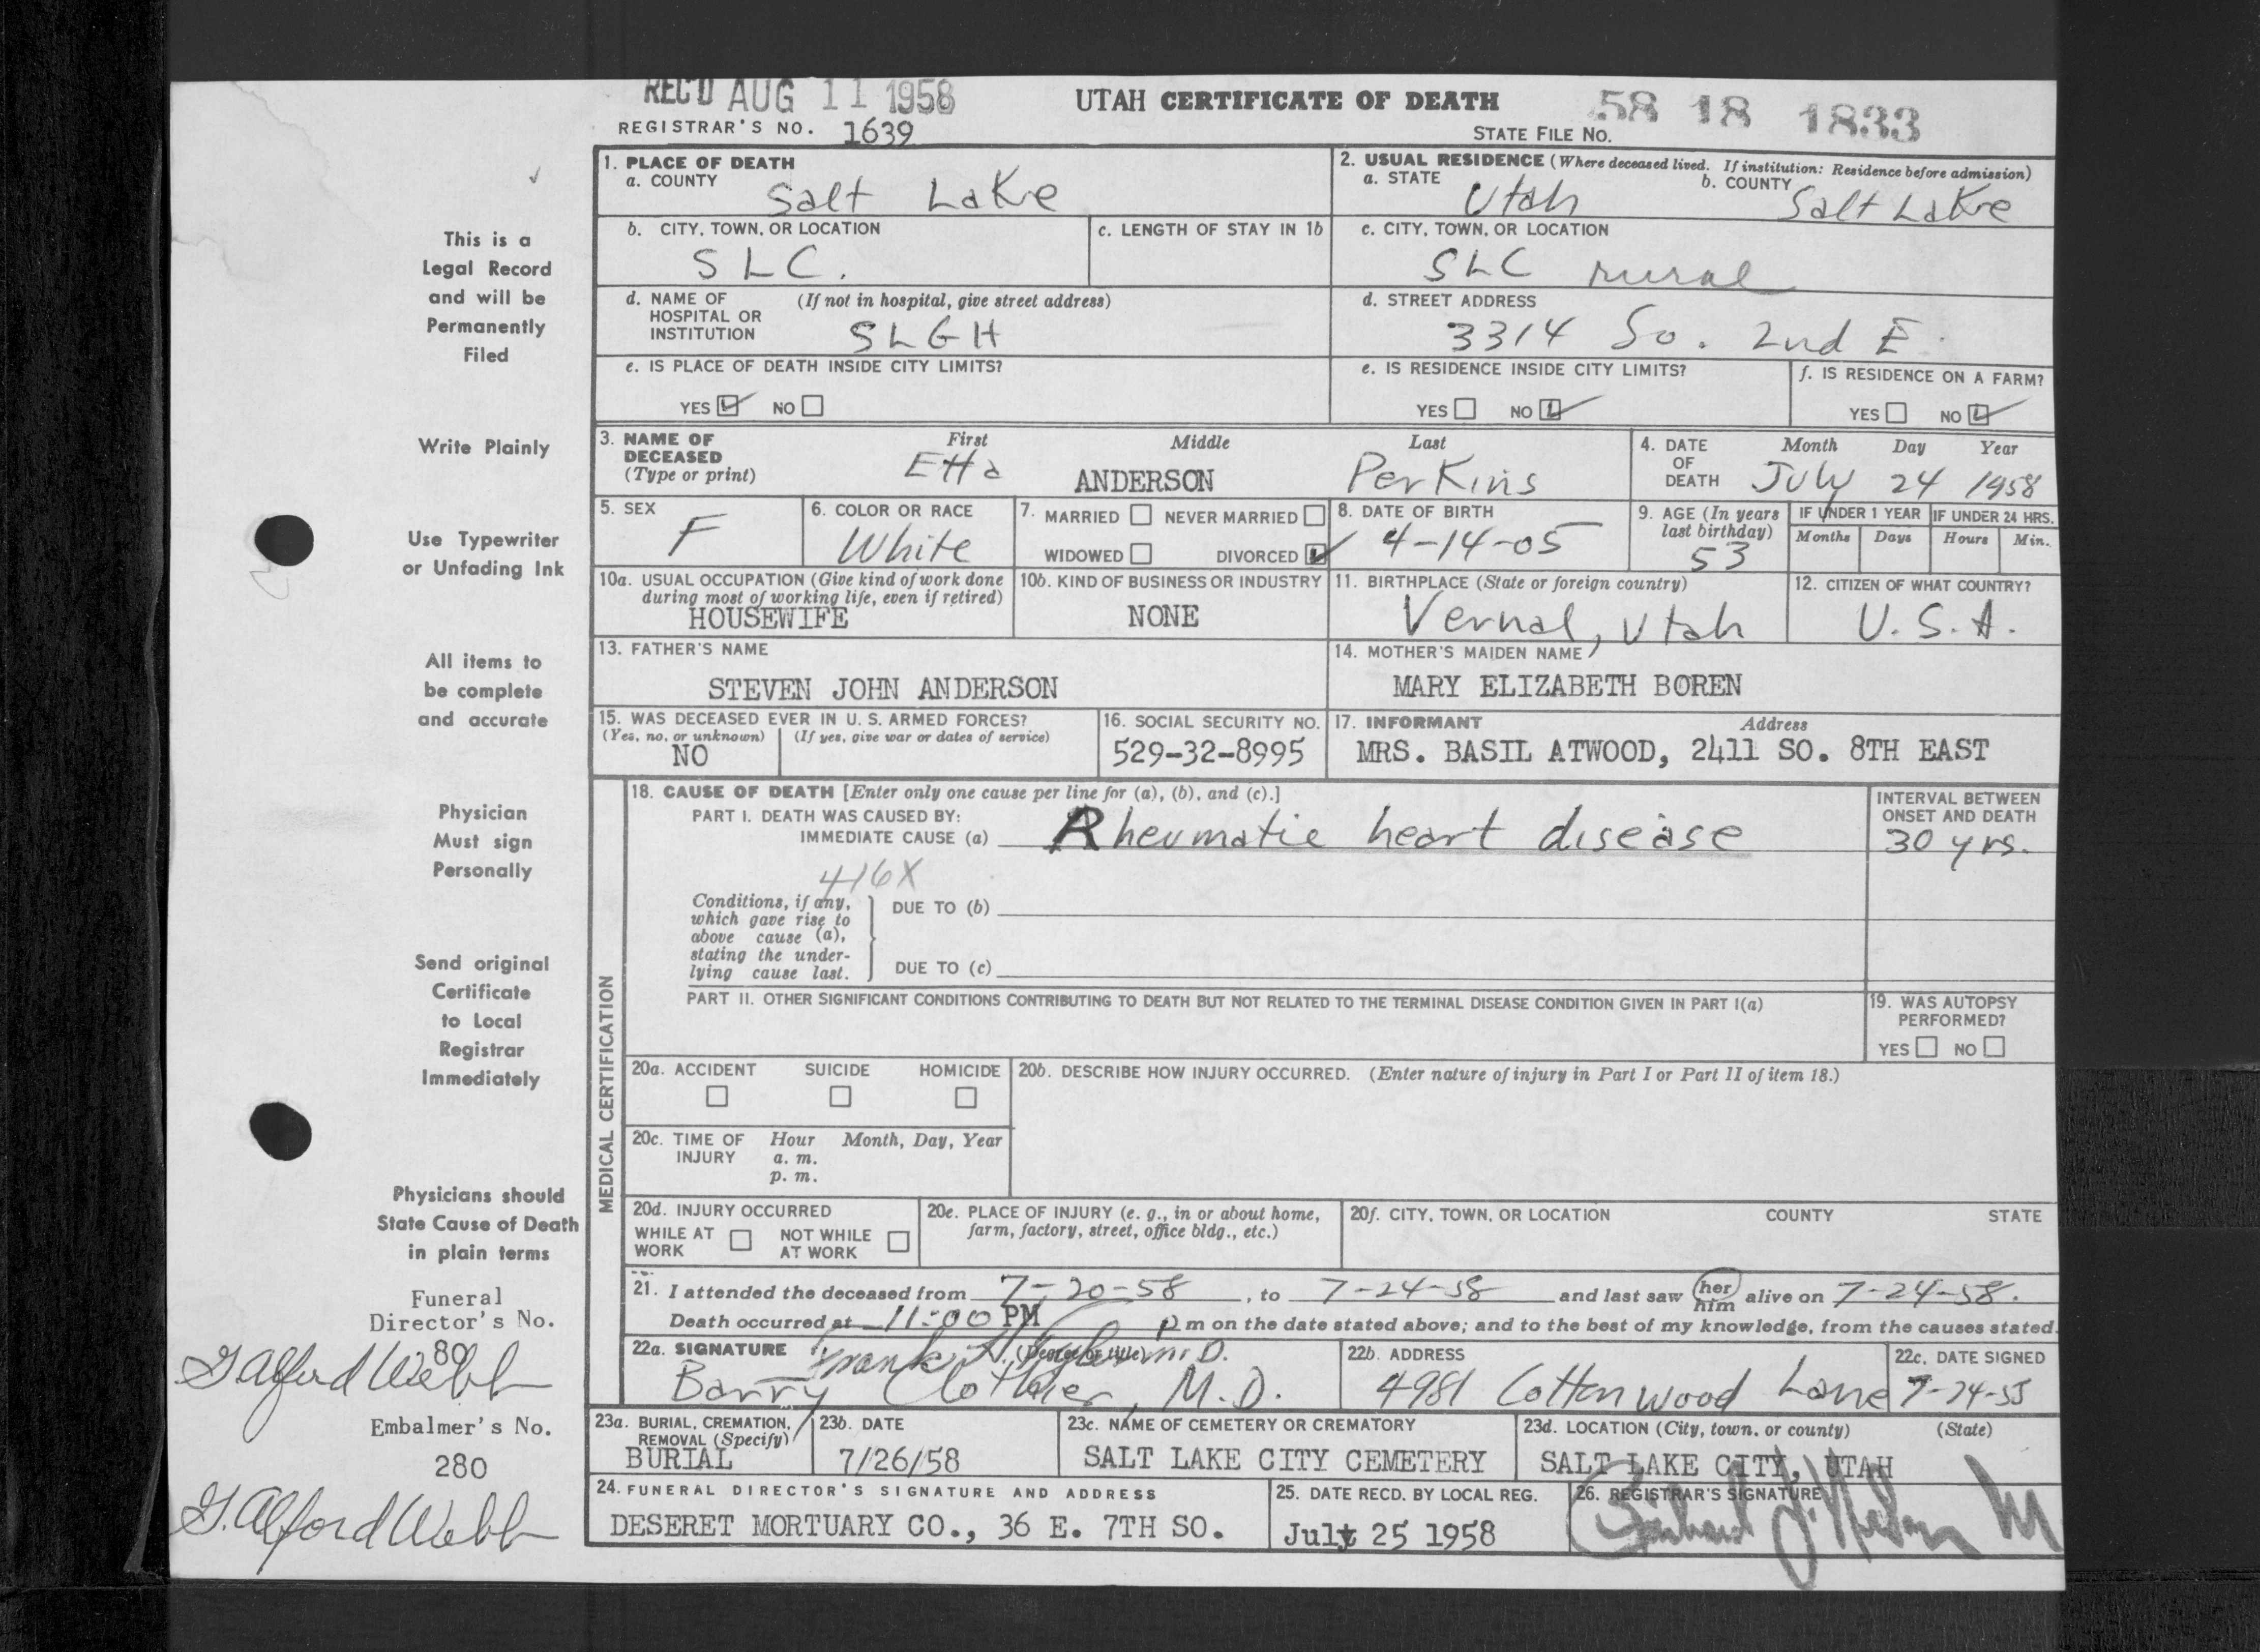 REC'D AUG 11 1958
UTAH CERTIFICATE OF DEATH
58 18 1833
REGISTRAR'S NO. 1639
STATE FILE NO.
This is a
Legal Record
and will be
Permanently
Filed
Write Plainly
Use Typewriter
or Unfading Ink
All items to
be complete
and accurate
Physician
Must sign
Personally
Send original
Certificate
to Local
Registrar
Immediately
Physicians should
State Cause of Death
in plain terms
Funeral
Director's No.
80
G Alford Webb
Embalmer's No.
280
G. Alford Webb
1. PLACE OF DEATH
a. COUNTY Salt Lake
2. USUAL RESIDENCE (Where deceased lived. If institution: Residence before admission)
a. STATE Utah b. COUNTY Salt Lake
b. CITY, TOWN, OR LOCATION
SLC.
c. LENGTH OF STAY IN 1b
c. CITY, TOWN, OR LOCATION
SLC rural
d. NAME OF (If not in hospital, give street address)
HOSPITAL OR
INSTITUTION SLGH
d. STREET ADDRESS
3314 So. 2nd E.
e. IS PLACE OF DEATH INSIDE CITY LIMITS?
YES NO
e. IS RESIDENCE INSIDE CITY LIMITS?
YES NO
f. IS RESIDENCE ON A FARM?
YES NO
3. NAME OF DECEASED (Type or print)
First Middle Last
Etta ANDERSON Perkins
4. DATE OF DEATH
Month Day Year
July 24 1958
5. SEX
F
6. COLOR OR RACE
White
7. MARRIED NEVER MARRIED
WIDOWED DIVORCED
8. DATE OF BIRTH
4-14-05
9. AGE (In years
last birthday)
53
IF UNDER 1 YEAR IF UNDER 24 HRS.
Months Days Hours Min.
10a. USUAL OCCUPATION (Give kind of work done
during most of working life, even if retired)
HOUSEWIFE
10b. KIND OF BUSINESS OR INDUSTRY
NONE
11. BIRTHPLACE (State or foreign country)
Vernal, Utah
12. CITIZEN OF WHAT COUNTRY?
U.S.A.
13. FATHER'S NAME
STEVEN JOHN ANDERSON
14. MOTHER'S MAIDEN NAME
MARY ELIZABETH BOREN
15. WAS DECEASED EVER IN U.S. ARMED FORCES?
(Yes, no, or unknown) (If yes, give war or dates of service)
NO
16. SOCIAL SECURITY NO.
529-32-8995
17. INFORMANT Address
MRS. BASIL ATWOOD, 2411 SO. 8TH EAST
MEDICAL CERTIFICATION
18. CAUSE OF DEATH [Enter only one cause per line for (a), (b), and (c).]
PART I. DEATH WAS CAUSED BY:
IMMEDIATE CAUSE (a) Rheumatic heart disease
INTERVAL BETWEEN
ONSET AND DEATH
30 yrs.
416X
Conditions, if any,
which gave rise to
above cause (a),
stating the under-
lying cause last.
DUE TO (b)
DUE TO (c)
PART II. OTHER SIGNIFICANT CONDITIONS CONTRIBUTING TO DEATH BUT NOT RELATED TO THE TERMINAL DISEASE CONDITION GIVEN IN PART I(a)
19. WAS AUTOPSY
PERFORMED?
YES NO
20a. ACCIDENT SUICIDE HOMICIDE
20b. DESCRIBE HOW INJURY OCCURRED. (Enter nature of injury in Part I or Part II of item 18.)
20c. TIME OF INJURY
Hour Month, Day, Year
a. m.
p. m.
20d. INJURY OCCURRED
WHILE AT WORK NOT WHILE AT WORK
20e. PLACE OF INJURY (e. g., in or about home,
farm, factory, street, office bldg., etc.)
20f. CITY, TOWN, OR LOCATION COUNTY STATE
21. I attended the deceased from 7-20-58, to 7-24-58 and last saw her him alive on 7-24-58.
Death occurred at 11:00 PM p m on the date stated above; and to the best of my knowledge, from the causes stated.
22a. SIGNATURE (Degree or title)
Frank M.D.
Barry Clothier, M.D.
22b. ADDRESS
4981 Cottonwood Lane
22c. DATE SIGNED
7-24-58
23a. BURIAL, CREMATION,
REMOVAL (Specify)
BURIAL
23b. DATE
7/26/58
23c. NAME OF CEMETERY OR CREMATORY
SALT LAKE CITY CEMETERY
23d. LOCATION (City, town, or county) (State)
SALT LAKE CITY, UTAH
24. FUNERAL DIRECTOR'S SIGNATURE AND ADDRESS
DESERET MORTUARY CO., 36 E. 7TH SO.
25. DATE RECD. BY LOCAL REG.
July 25 1958
26. REGISTRAR'S SIGNATURE